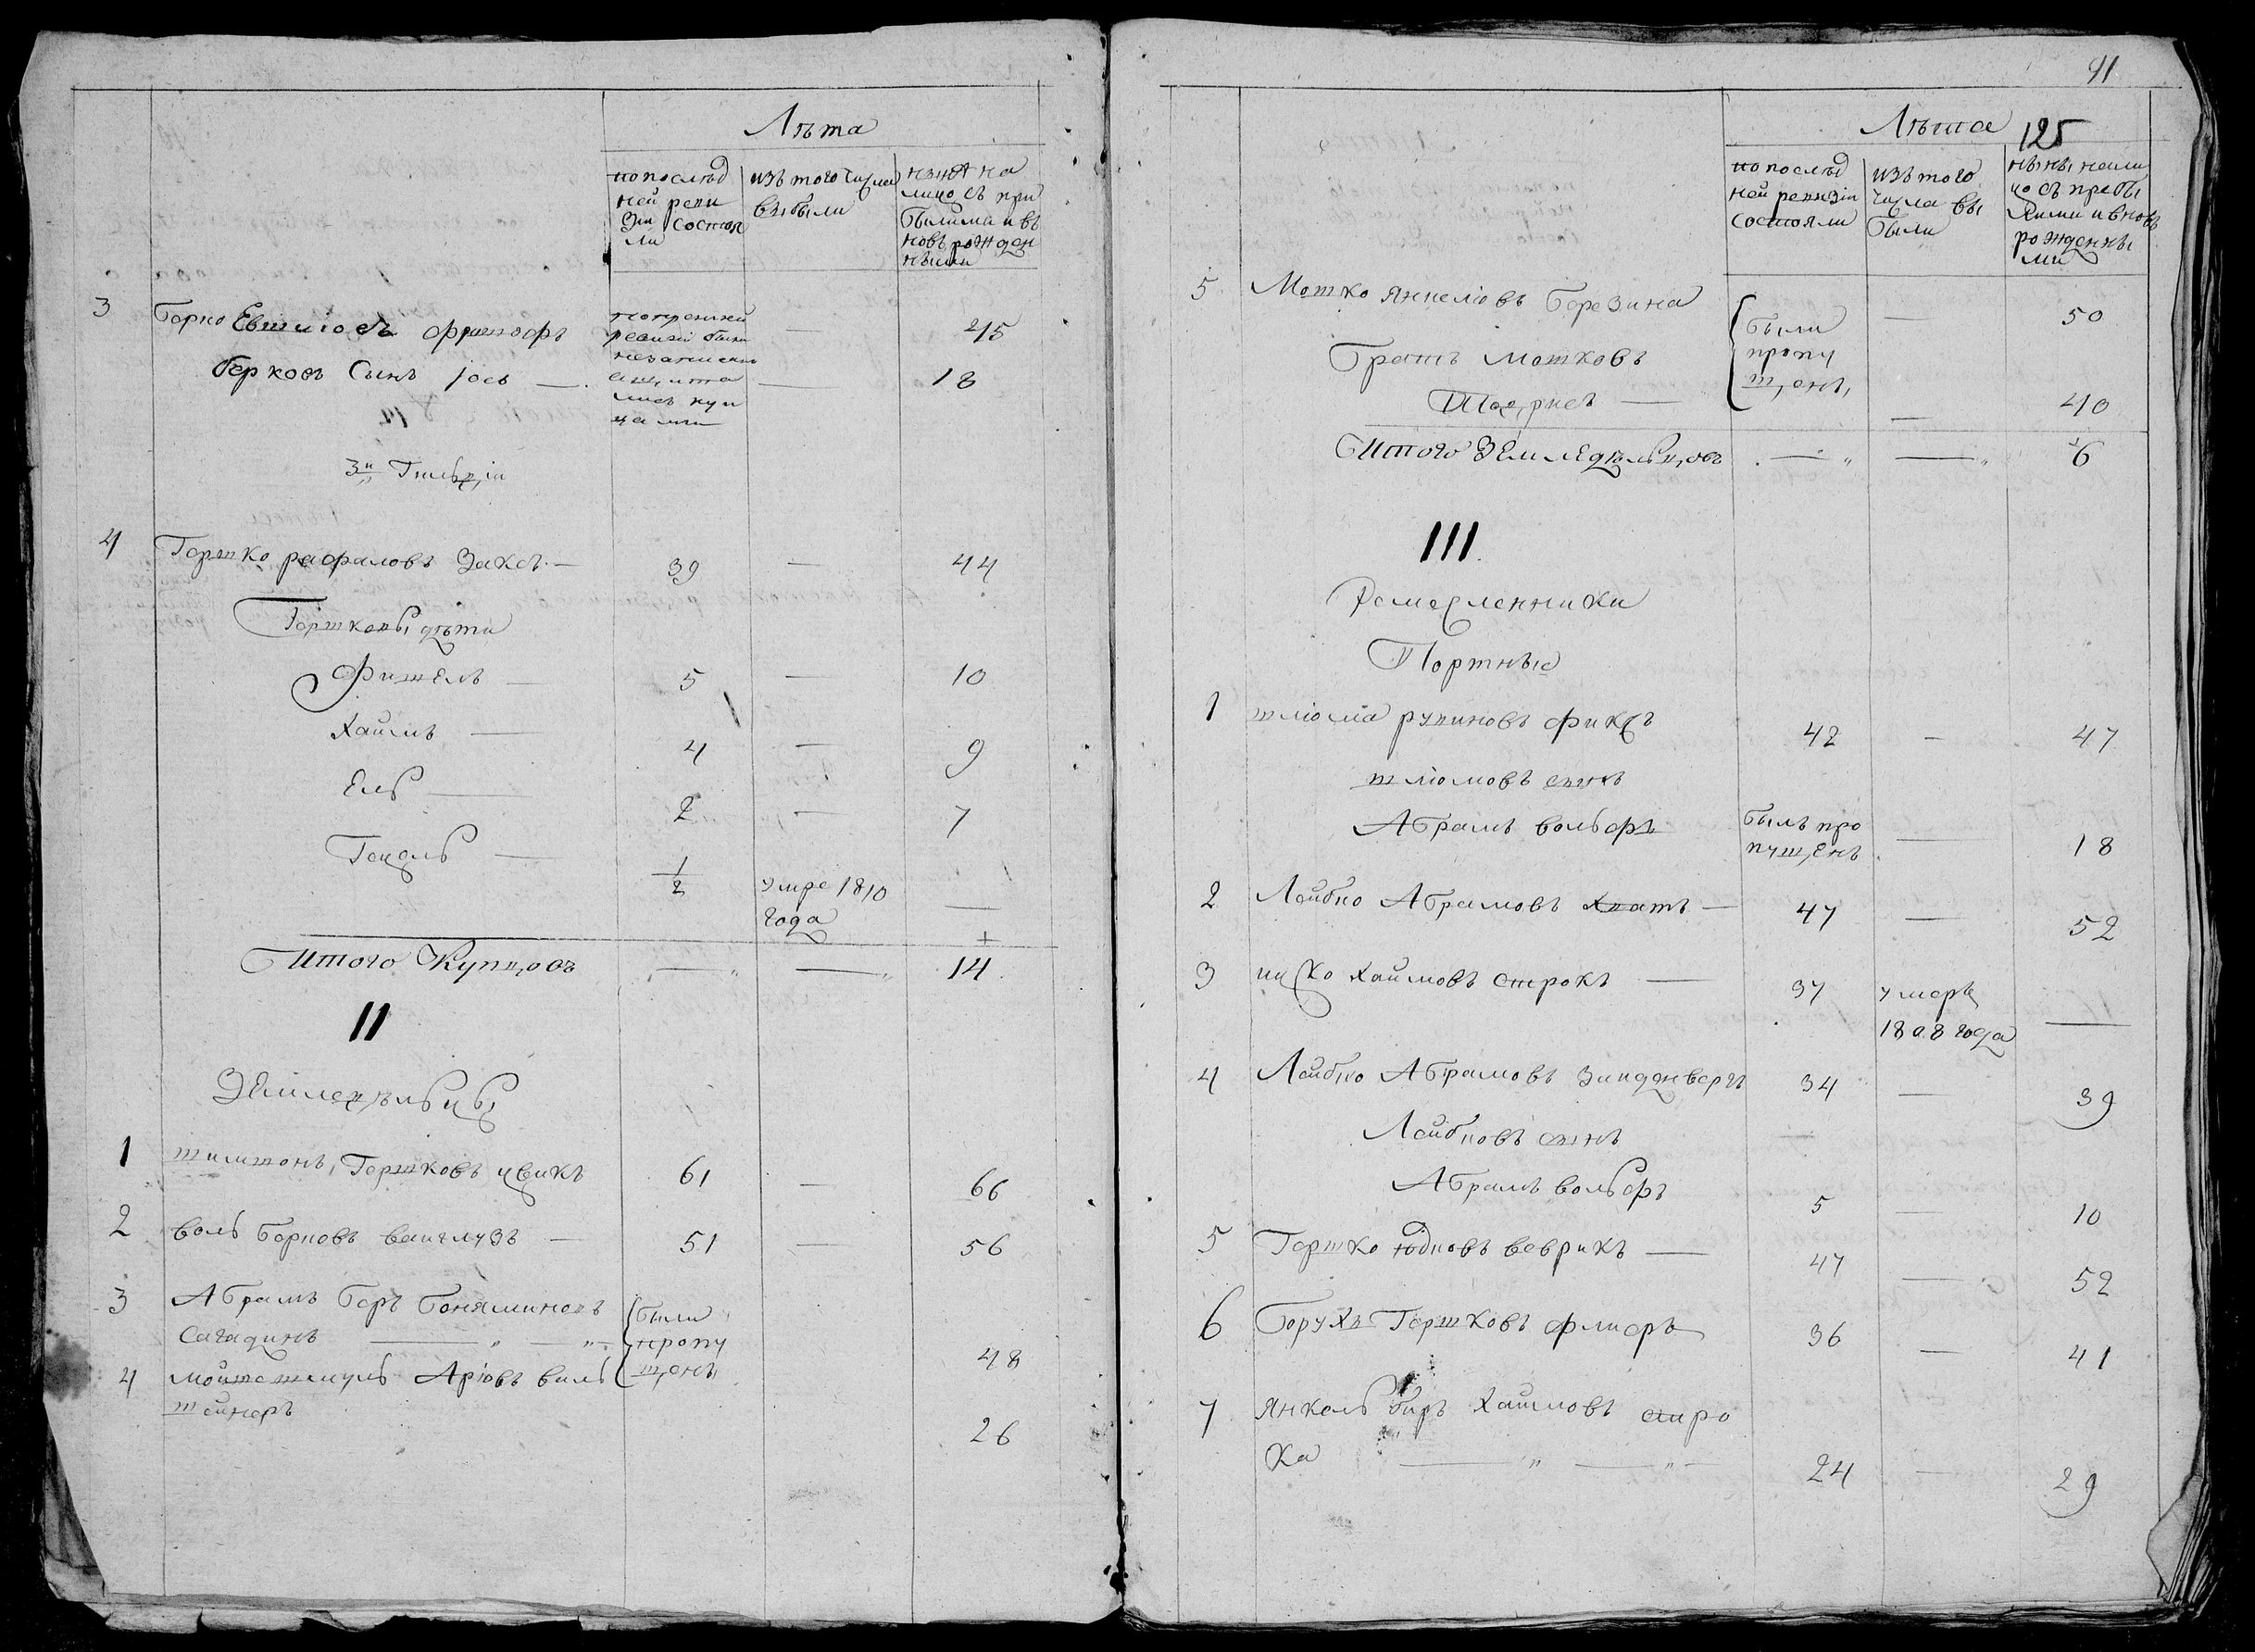 Лѣта
по послѣд
ней реви
зіи состоя
ли
изъ того числа
выбыли
нынѣ на
лицо съ при
былыми и въ
новь рожден
ными
3 Берко фишофъ
по прежней
ревизіи были
незаписаны
лись куп
цами
—
45
Берковъ Сынъ Іось — — 18
3й Гильдіи
4 Гершко рафаловъ Заксъ — 39 — 44
Гершковы дѣти
Фишель — 5 — 10
Хаимъ — 4 — 9
Ель — 2 — 7
Гецель — 1/2 умре 1810
года —
Итого Купцовъ — — 14
II
Земледѣльцы
1 Гершковъ цвикъ 61 — 66
2 воль Берковъ — 51 — 56
3 Абрамъ Беръ Беняминовъ были
Сагадинъ — пропу 48
4 Аріовъ виль щены
штейнеръ 26
91
Лѣта 125
по послѣд
ней ревизіи
состояли
изъ того
числа вы
были
нынѣ нали
цо съ прибы
лыми и вновь
рожденны
ми
5 Мошко Янкеліовъ Березина были — 50
Братъ Мошковъ пропу
— щены — 40
Итого Землѣдѣльцовъ — — 6
III
Ремесленники
Портные
1 шліома рувиновъ фиксъ 42 — 47
шліомовъ сынъ
Абрамъ вольфъ былъ про
пущенъ — 18
2 Лейбко Абрамовъ — 47 — 52
3 ицко хаимовъ строкъ — 37 умеръ
1808 года —
4 Лейбко Абрамовъ зинденбергъ 34 — 39
Лейбковъ сынъ
Абрамъ вольфъ 5 — 10
5 Гершко юдковъ веврикъ — 47 — 52
6 Борухъ Гершковъ флиеръ 36 — 41
7 Янкель биръ Хаимовъ стро
ка — 24 — 29